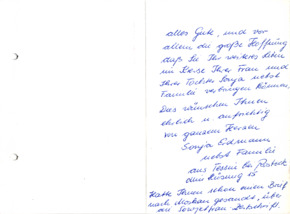 alles Gute, und vor
allem die große Hoffnung
daß Sie Ihr weiteres Leben
im Kreise Ihrer Frau und
Ihrer Tochter Sonja nebst
Familie verbringen können.
Das wünschen Ihnen
ehrlich u. aufrichtig
von ganzem Herzen
Sonja Erdmann
nebst Familie
aus Tessin bei Rostock
Hatte Ihnen schon einen Brief
nach Moskau gesandt, über
die Sowjetfrau